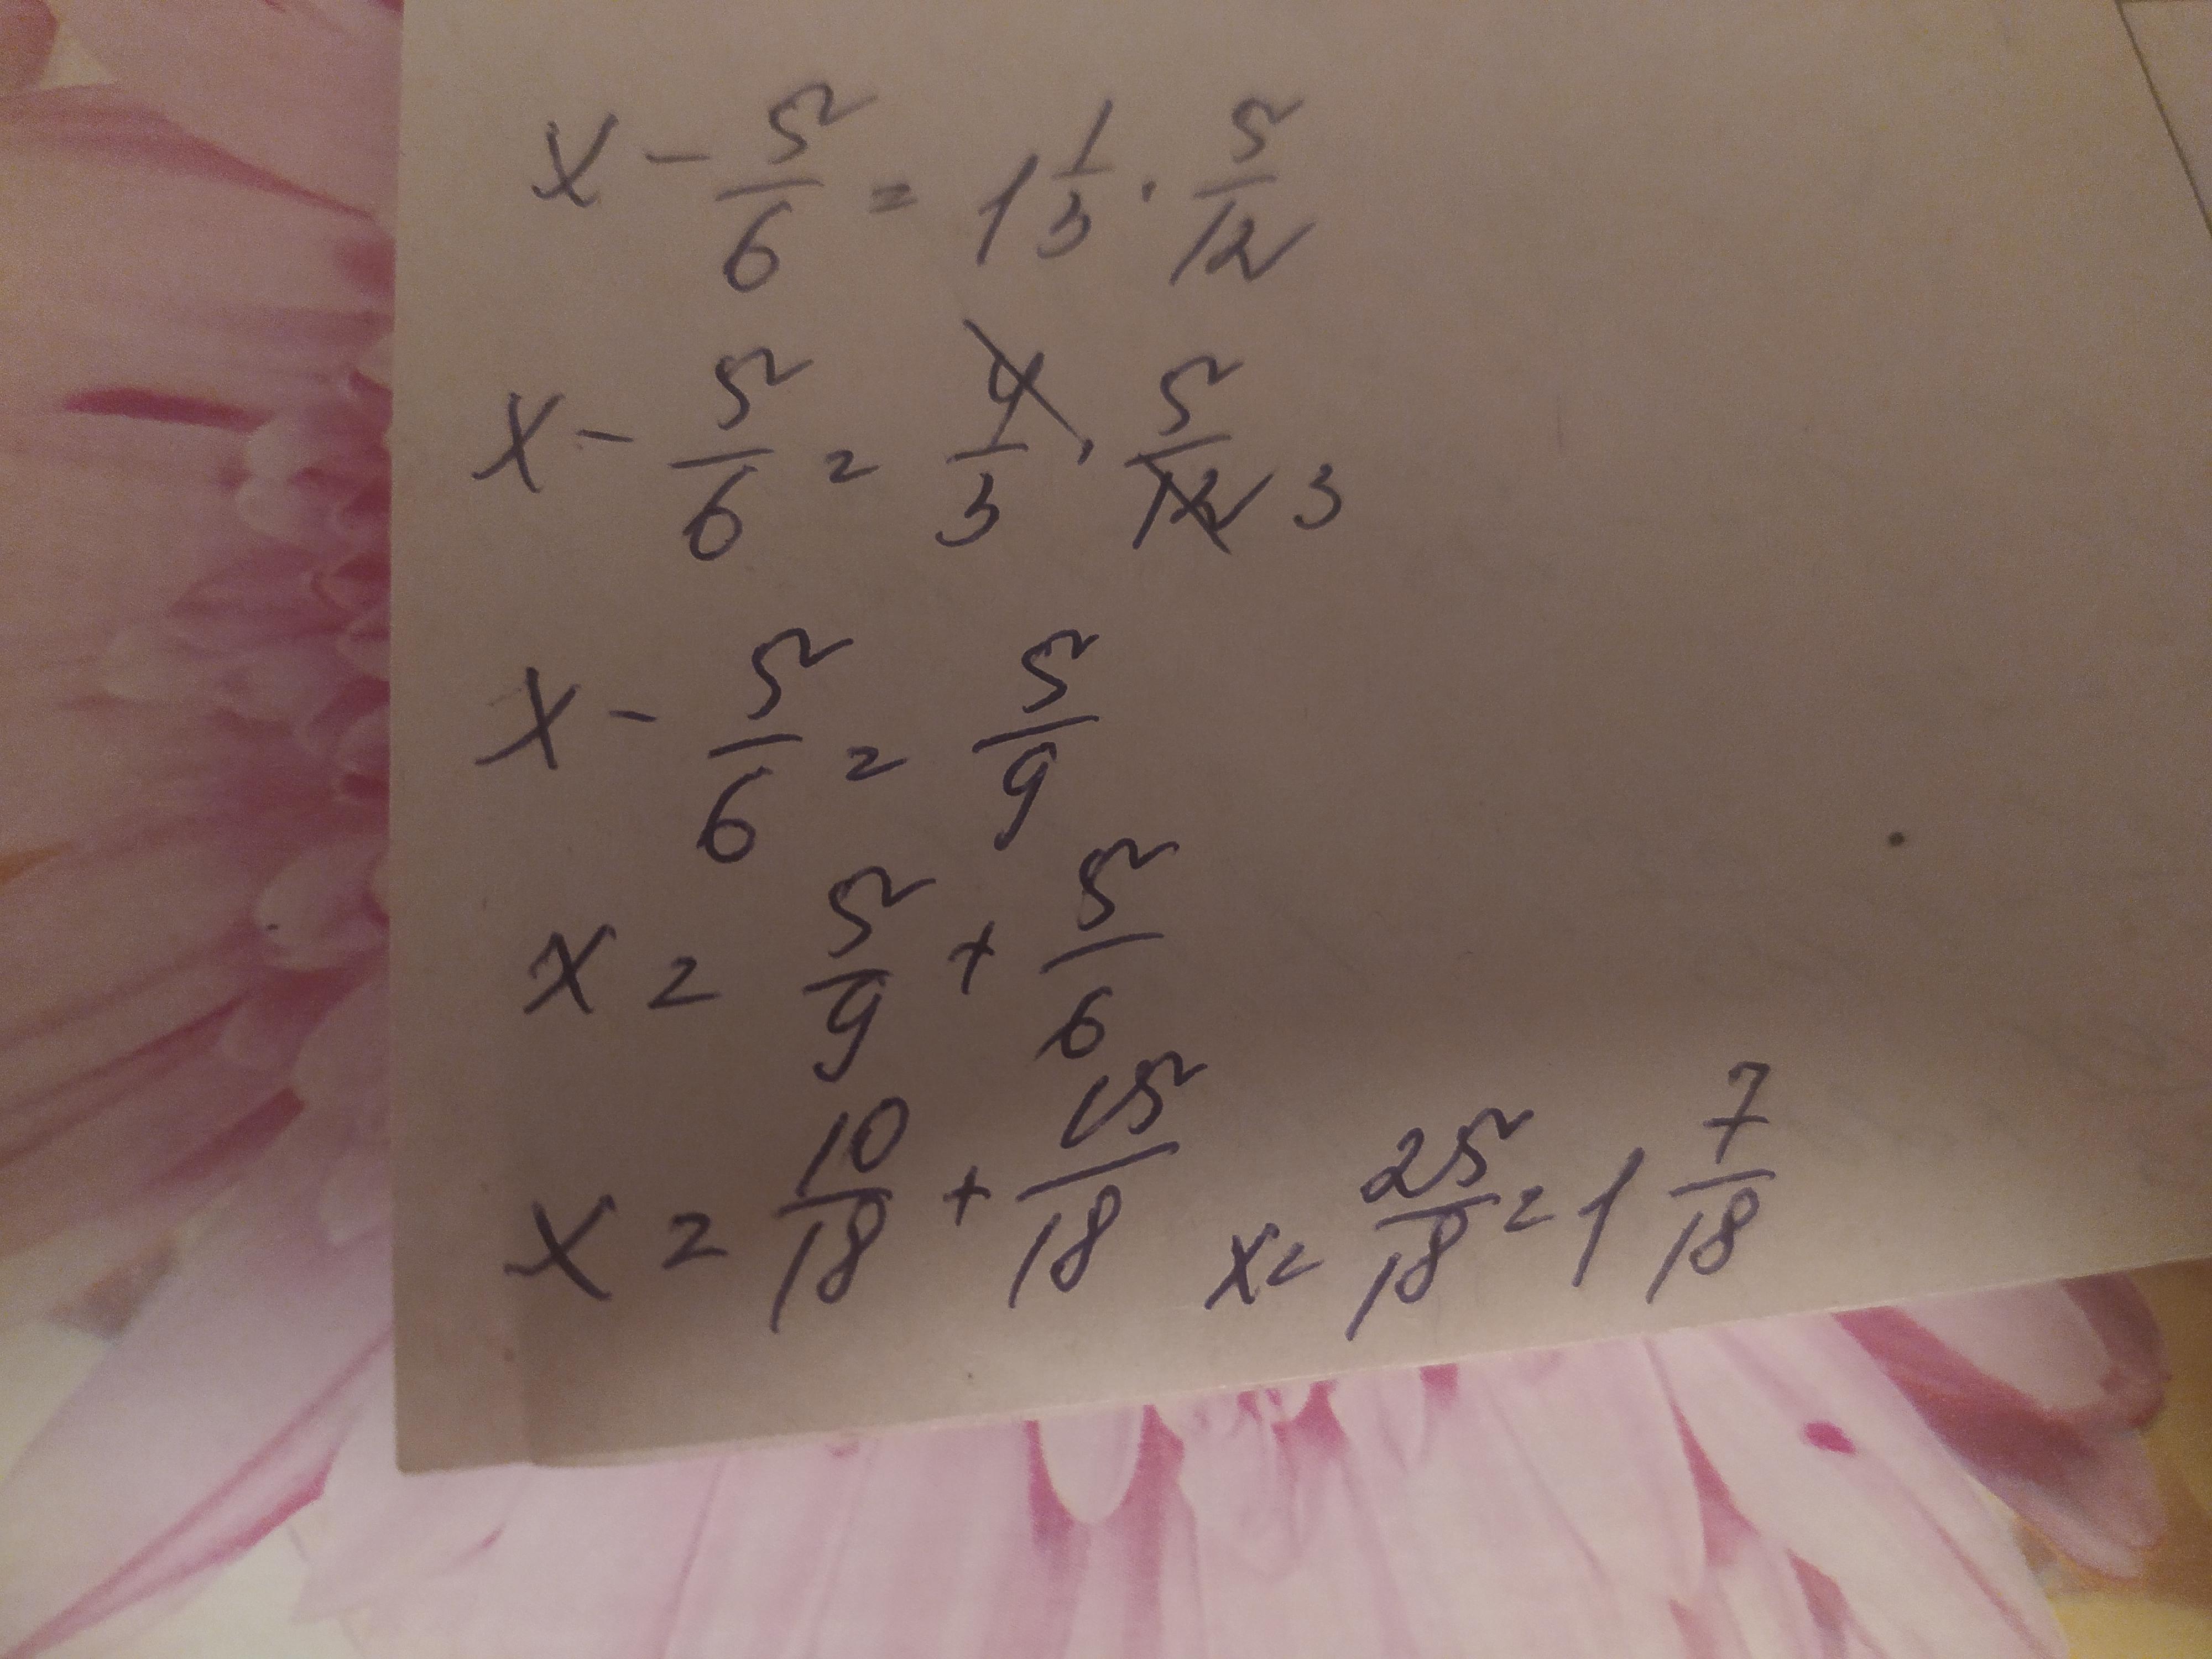 x - 5/6 = 1 1/3 · 5/12
x - 5/6 = 4/3 · 5/12 3
x - 5/6 = 5/9
x = 5/9 + 5/6
x = 10/18 + 15/18 x = 25/18 = 1 7/18